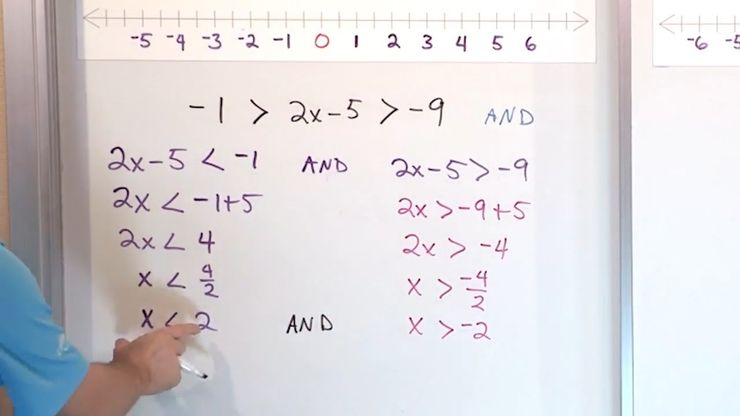 -5 -4 -3 -2 -1 0 1 2 3 4 5 6
-6 -5
-1 > 2x-5 > -9 AND
2x-5 < -1 AND 2x-5 > -9
2x < -1+5 2x > -9+5
2x < 4 2x > -4
x < 4/2 x > -4/2
x < 2 AND x > -2